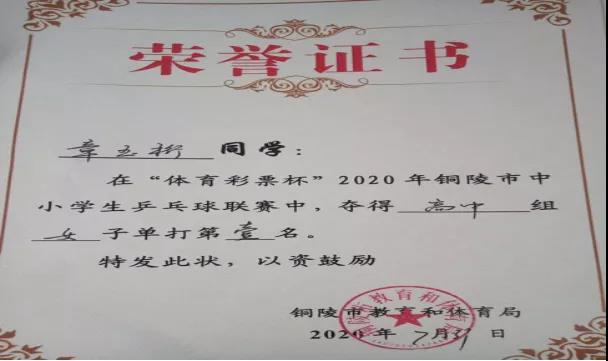 荣誉证书
章玉 同学：
在“体育彩票杯”2020年铜陵市中
小学生乒乓球联赛中，夺得 高中 组
女 子单打第壹名。
特发此状，以资鼓励
铜陵市教育和体育局
2020年7月 日